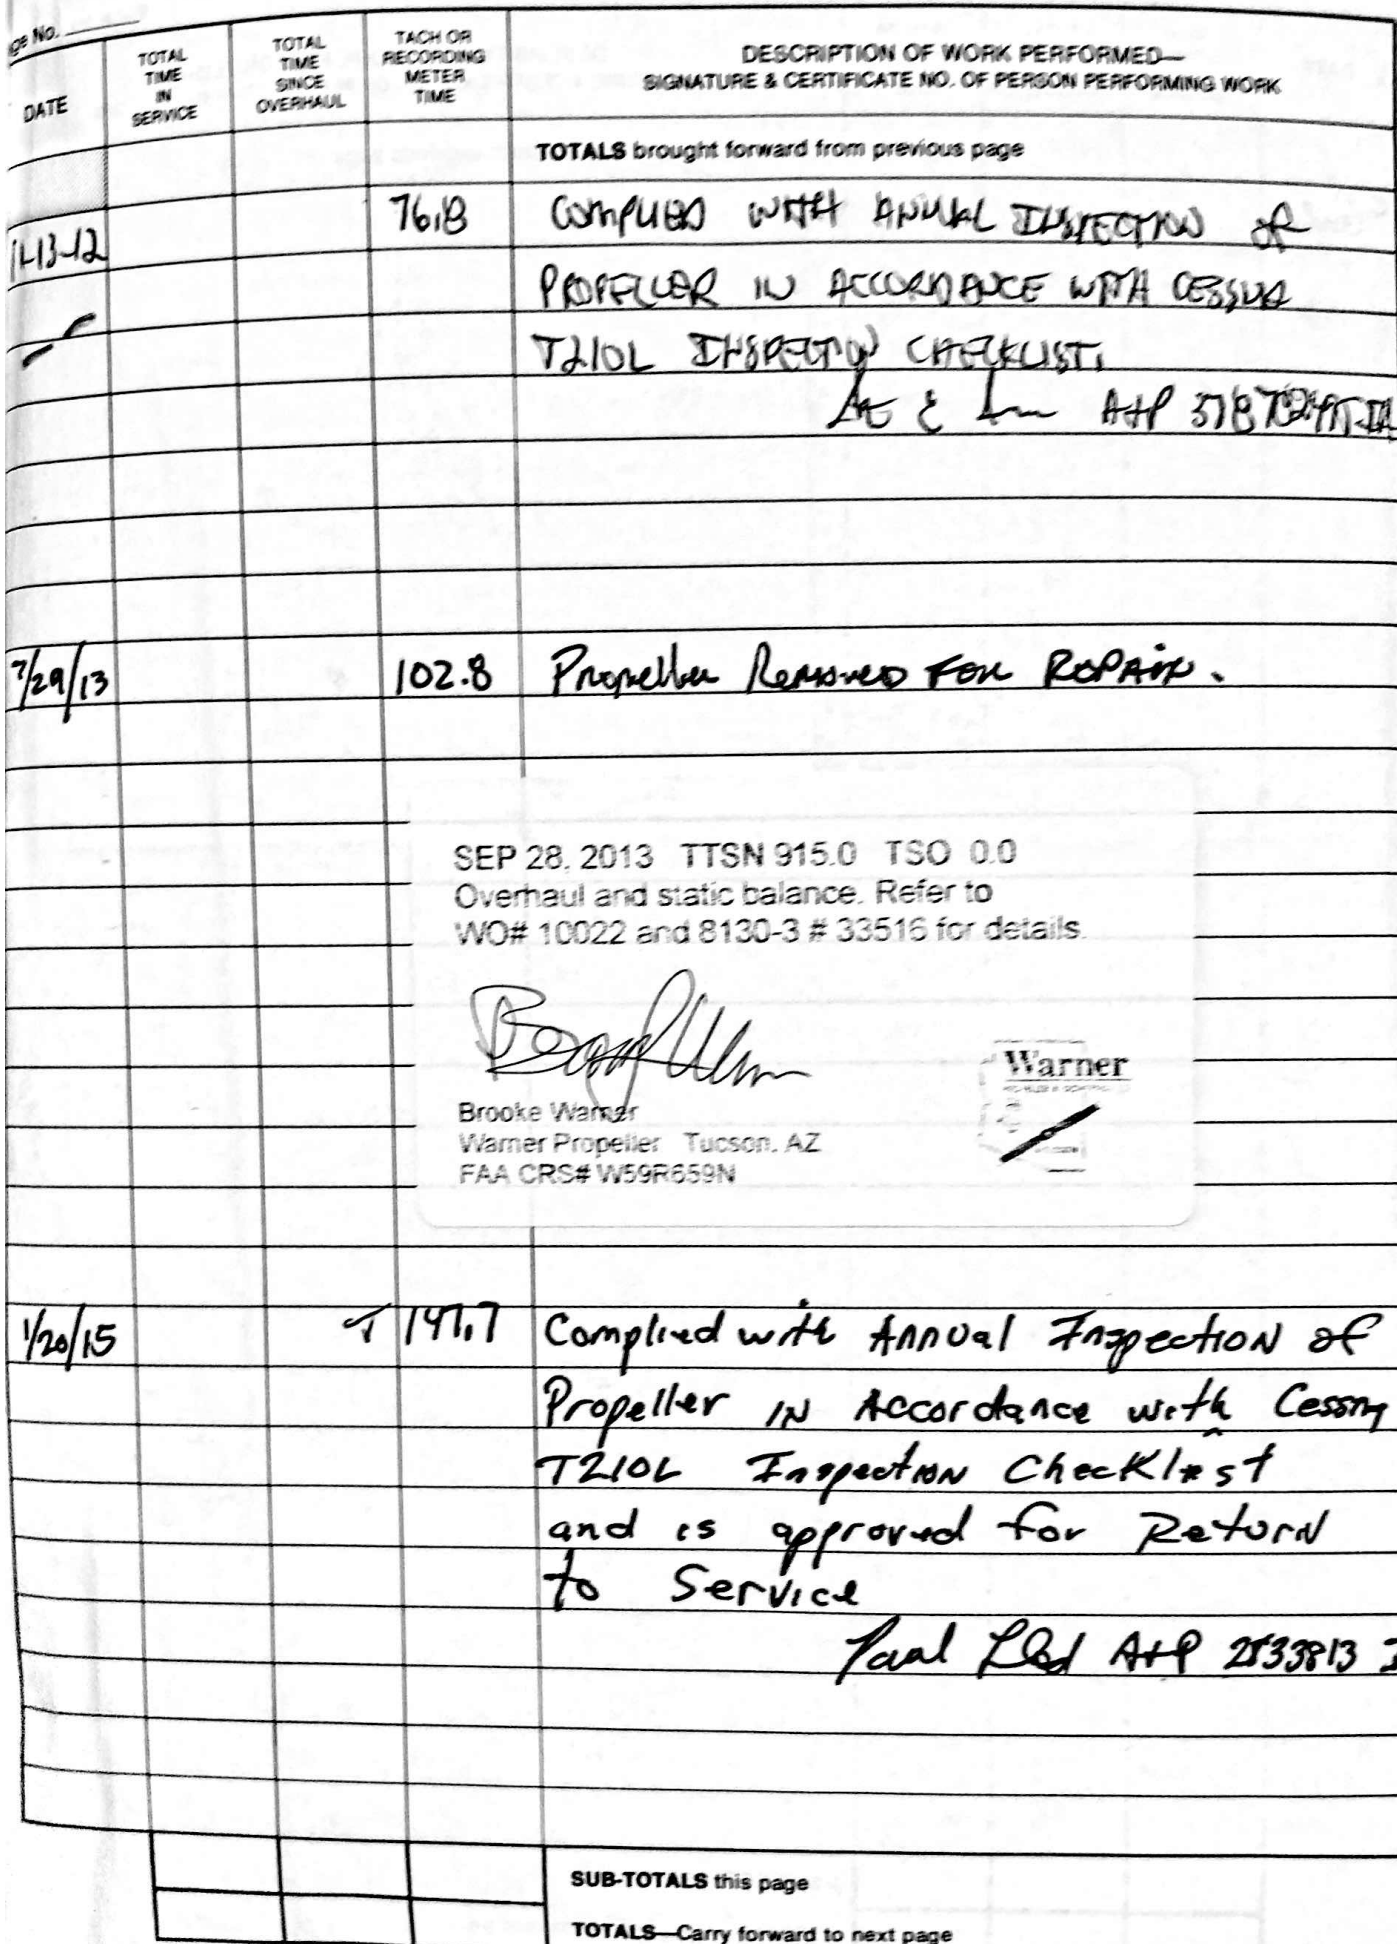 ge No.
DATE
TOTAL TIME IN SERVICE
TOTAL TIME SINCE OVERHAUL
TACH OR RECORDING METER TIME
DESCRIPTION OF WORK PERFORMED—
SIGNATURE & CERTIFICATE NO. OF PERSON PERFORMING WORK
TOTALS brought forward from previous page
11-13-12 76.8 COMPLIED WITH ANNUAL INSPECTION OF
PROPELLER IN ACCORDANCE WITH CESSNA
T210L INSPECTION CHECKLIST.
A+P
7/29/13 102.8 Propeller Removed FOR REPAIR.
SEP 28, 2013 TTSN 915.0 TSO 0.0
Overhaul and static balance. Refer to
WO# 10022 and 8130-3 # 33516 for details.
Warner
Brooke Warner
Warner Propeller Tucson, AZ
FAA CRS# W59R659N
1/20/15 T 147.7 Complied with Annual Inspection of
Propeller IN Accordance with Cessna
T210L Inspection Checklist
and is approved for Return
to Service
Paul A+P 2533813 I
SUB-TOTALS this page
TOTALS—Carry forward to next page